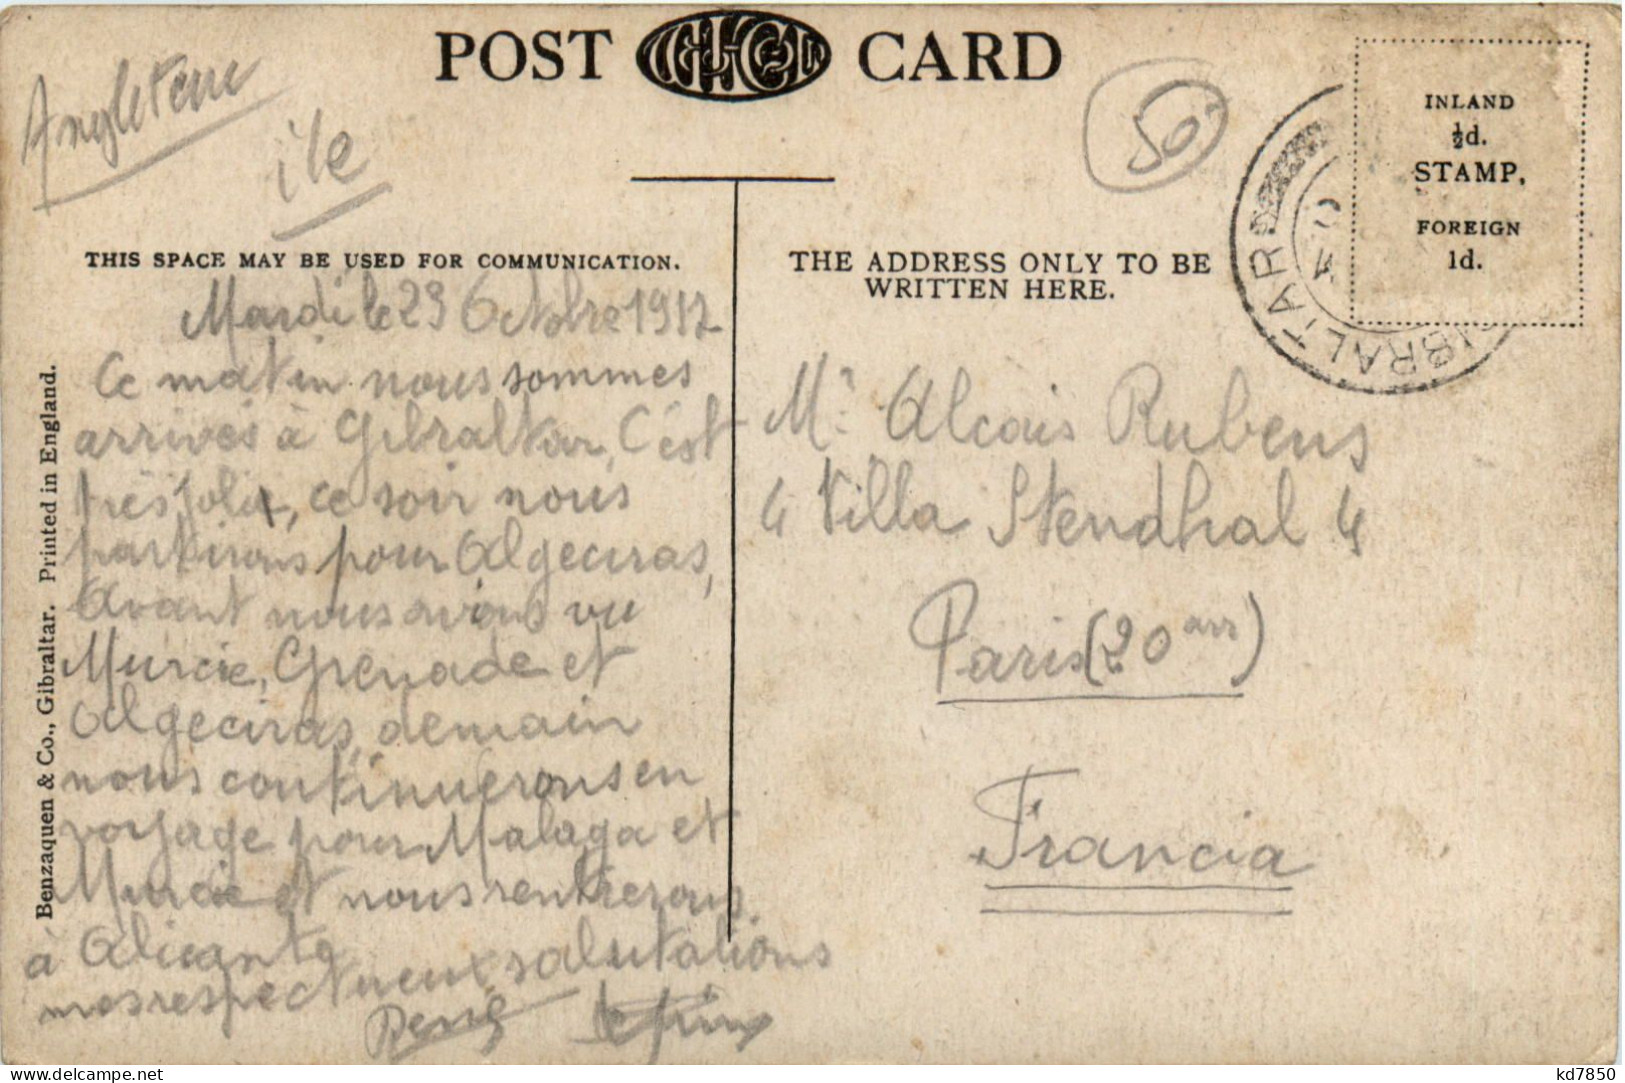 POST CARD
Angleterre
ile
50
INLAND
½d.
STAMP,
FOREIGN
1d.
GIBRALTAR
THIS SPACE MAY BE USED FOR COMMUNICATION.
THE ADDRESS ONLY TO BE
WRITTEN HERE.
Mardi le 29 Octobre 1912
Ce matin nous sommes
arrivés à Gibraltar, C'est
très joli, ce soir nous
partirons pour Algeciras,
Avant nous avions vu
Murcie, Grenade et
Algeciras, demain
nous continuerons en
voyage pour Malaga et
Murcie et nous rentrerons
à Alicante
mes respectueux salutations
René
Mr Alcais Rubens
4 Villa Stendhal 4
Paris (20 arr)
Francia
Benzaquen & Co., Gibraltar. Printed in England.
kd7850